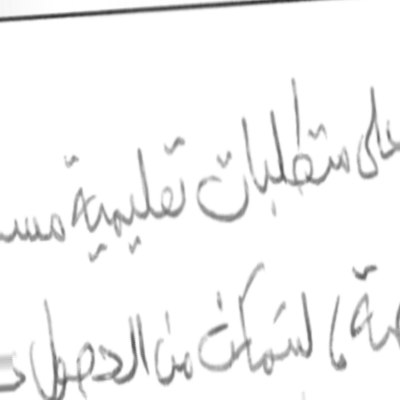 على متطلبات تعليمية مسـ
ـمة، لتتمكن من الحصول